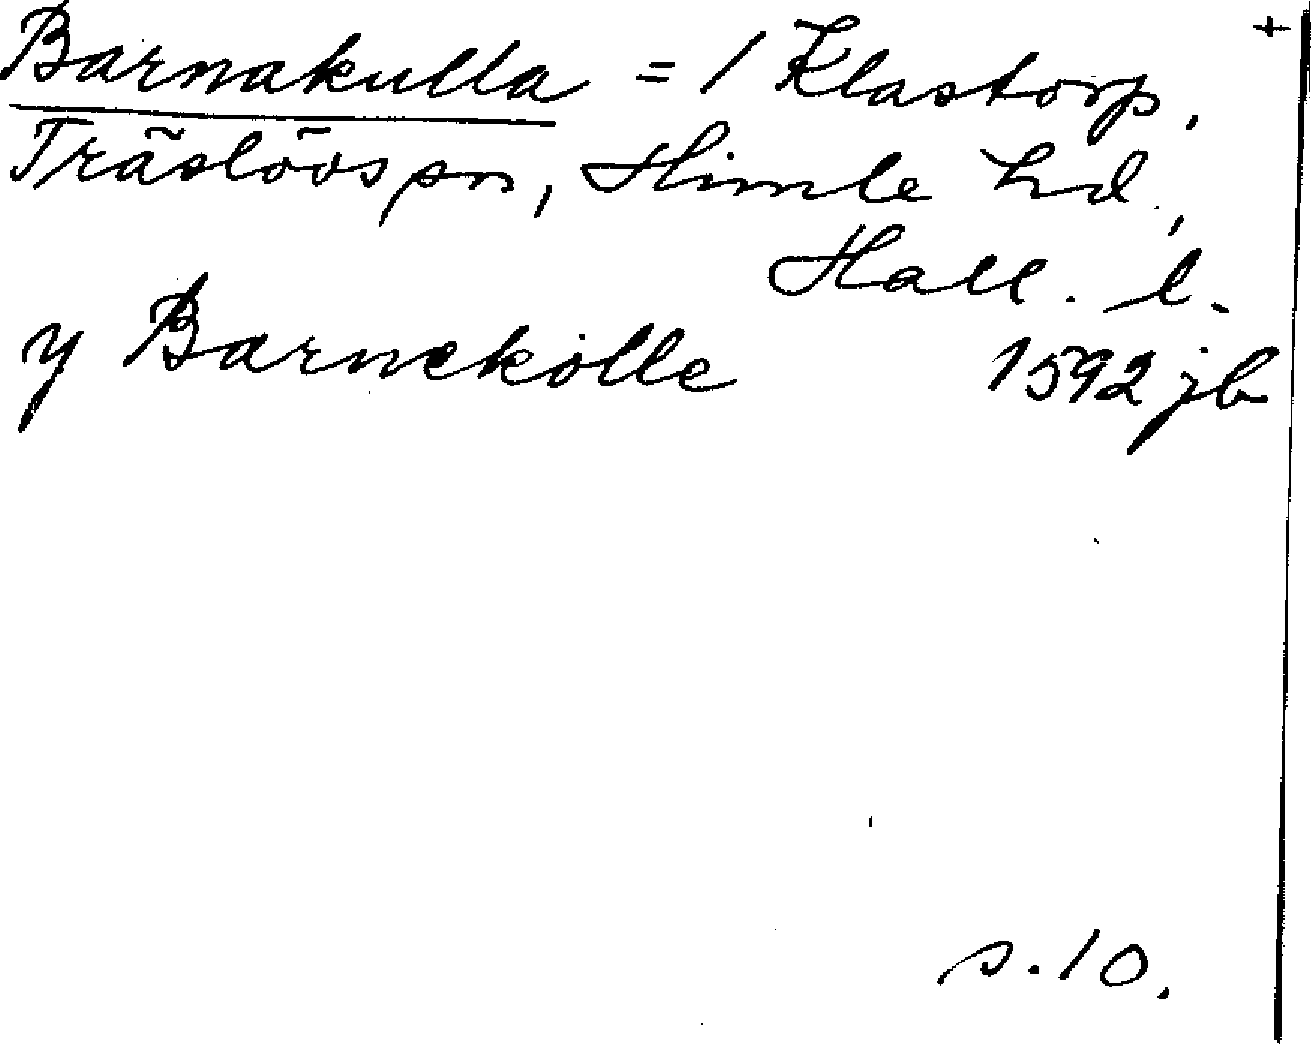 Barnakulla = 1 Klastorp, +
Träslövs sn, Himle hd,
Hall. l.
y Barnekolle 1592 jb
s. 10.